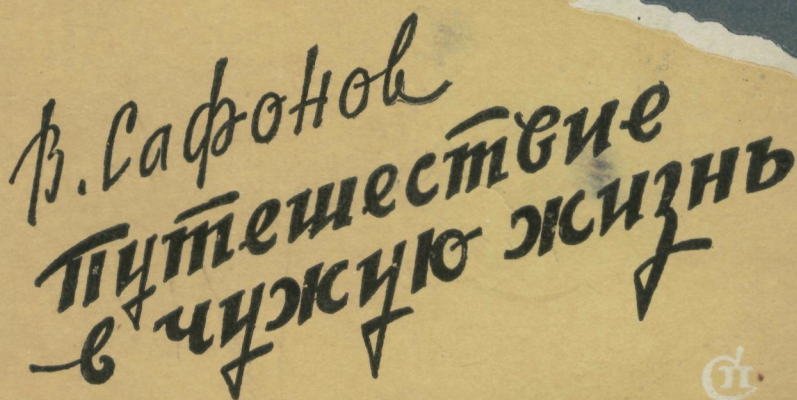 В. Сафонов
Путешествие
в чужую жизнь
СП